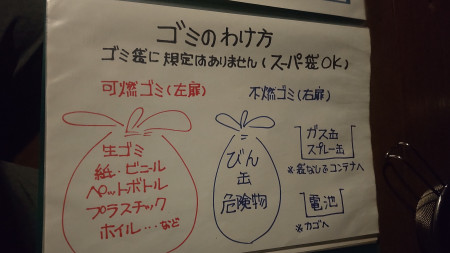 ゴミのわけ方
ゴミ袋に規定はありません(スーパー袋OK)
可燃ゴミ(左扉)
生ゴミ
紙・ビニール
ペットボトル
プラスチック
ホイル…など
不燃ゴミ(右扉)
びん
缶
危険物
ガス缶
スプレー缶
※袋なしでコンテナへ
電池
※カゴへ